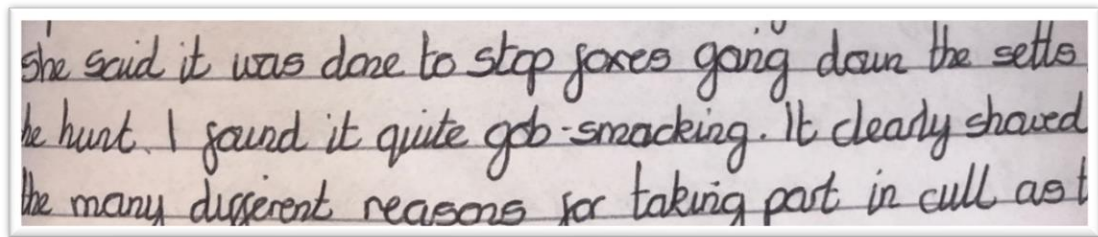 she said it was done to stop foxes going down the setts
he hunt. I found it quite gob-smacking. It clearly showed
the many different reasons for taking part in cull as t